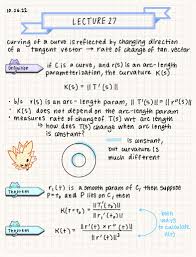 10.26.22
LECTURE 27
Curving of a curve is reflected by changing direction
of a tangent vector → rate of change of tan vector
Definition
if C is a curve, and r(s) is an arc-length
parameterization, the curvature K(s)
K(s) = || T'(s) ||
• b/c r(s) is an arc-length param, K(s) = || T'(s) || = || r"(s) ||
• K(s) does not depend on the arc-length param
measures rate of change of T(s) wrt arc length
→ how does T(s) change when arc length
is constant?
is constant,
but curvature is
much different
Theorem
r(t) is a smooth param of C, then suppose
P = and P lies on C, then
K(t₀) = || T'(t₀) || / || r'(t₀) ||
both
ways
to calculate
K(t)
Theorem
K(t) = || r'(t) × r"(t) || / || r'(t) ||³